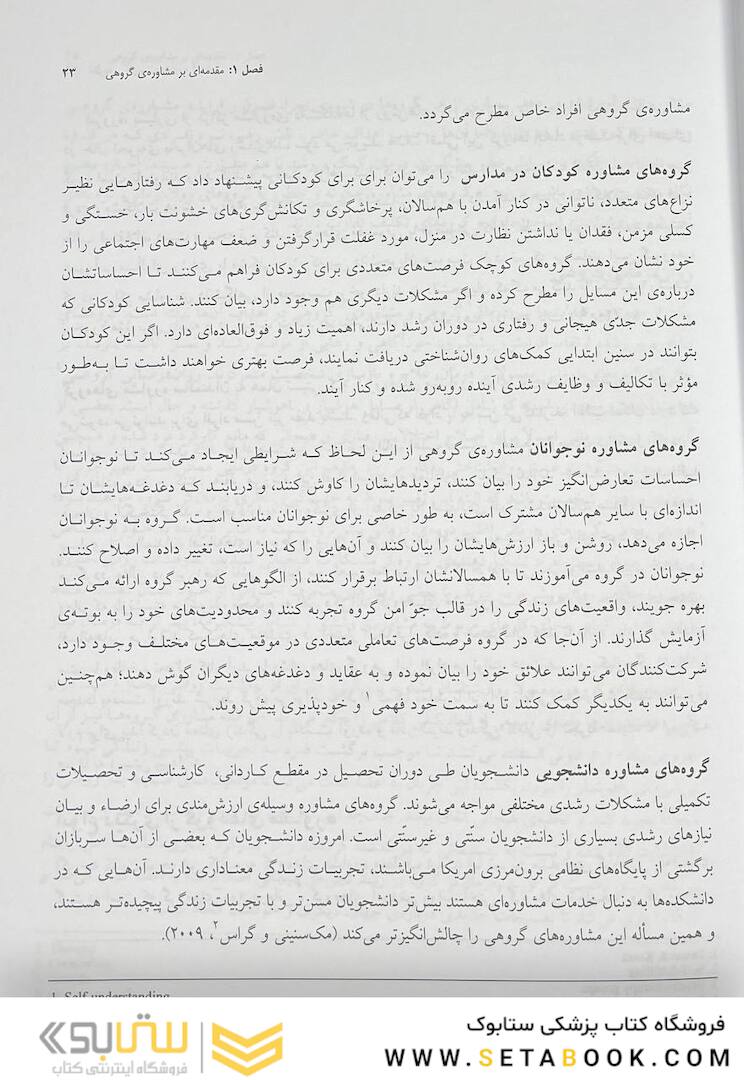 فصل ۱: مقدمه‌ای بر مشاوره‌ی گروهی ۲۳
مشاوره‌ی گروهی افراد خاص مطرح می‌گردد.
گروه‌های مشاوره کودکان در مدارس را می‌توان برای برای کودکانی پیشنهاد داد که رفتارهایی نظیر
نزاع‌های متعدد، ناتوانی در کنار آمدن با هم‌سالان، پرخاشگری و تکانش‌گری‌های خشونت بار، خستگی و
کسلی مزمن، فقدان یا نداشتن نظارت در منزل، مورد غفلت قرارگرفتن و ضعف مهارت‌های اجتماعی را از
خود نشان می‌دهند. گروه‌های کوچک فرصت‌های متعددی برای کودکان فراهم می‌کنند تا احساساتشان
درباره‌ی این مسایل را مطرح کرده و اگر مشکلات دیگری هم وجود دارد، بیان کنند. شناسایی کودکانی که
مشکلات جدّی هیجانی و رفتاری در دوران رشد دارند، اهمیت زیاد و فوق‌العاده‌ای دارد. اگر این کودکان
بتوانند در سنین ابتدایی کمک‌های روان‌شناختی دریافت نمایند، فرصت بهتری خواهند داشت تا به‌طور
مؤثر با تکالیف و وظایف رشدی آینده روبه‌رو شده و کنار آیند.
گروه‌های مشاوره نوجوانان مشاوره‌ی گروهی از این لحاظ که شرایطی ایجاد می‌کند تا نوجوانان
احساسات تعارض‌انگیز خود را بیان کنند، تردیدهایشان را کاوش کنند، و دریابند که دغدغه‌هایشان تا
اندازه‌ای با سایر هم‌سالان مشترک است، به طور خاصی برای نوجوانان مناسب است. گروه به نوجوانان
اجازه می‌دهد، روشن و باز ارزش‌هایشان را بیان کنند و آن‌هایی را که نیاز است، تغییر داده و اصلاح کنند.
نوجوانان در گروه می‌آموزند تا با همسالانشان ارتباط برقرار کنند، از الگوهایی که رهبر گروه ارائه می‌کند
بهره جویند، واقعیت‌های زندگی را در قالب جوّ امن گروه تجربه کنند و محدودیت‌های خود را به بوته‌ی
آزمایش گذارند. از آن‌جا که در گروه فرصت‌های تعاملی متعددی در موقعیت‌های مختلف وجود دارد،
شرکت‌کنندگان می‌توانند علائق خود را بیان نموده و به عقاید و دغدغه‌های دیگران گوش دهند؛ هم‌چنین
می‌توانند به یکدیگر کمک کنند تا به سمت خود فهمی۱ و خودپذیری پیش روند.
گروه‌های مشاوره دانشجویی دانشجویان طی دوران تحصیل در مقطع کاردانی، کارشناسی و تحصیلات
تکمیلی با مشکلات رشدی مختلفی مواجه می‌شوند. گروه‌های مشاوره وسیله‌ی ارزش‌مندی برای ارضاء و بیان
نیازهای رشدی بسیاری از دانشجویان سنّتی و غیرسنّتی است. امروزه دانشجویان که بعضی از آن‌ها سربازان
برگشتی از پایگاه‌های نظامی برون‌مرزی امریکا می‌باشند، تجربیات زندگی معناداری دارند. آن‌هایی که در
دانشکده‌ها به دنبال خدمات مشاوره‌ای هستند بیش‌تر دانشجویان مسن‌تر و با تجربیات زندگی پیچیده‌تر هستند،
و همین مسأله این مشاوره‌های گروهی را چالش‌انگیزتر می‌کند (مک‌سنینی و گراس۲، ۲۰۰۹).
1. Self understanding
فروشگاه کتاب پزشکی ستابوک
WWW.SETABOOK.COM
ستابوک
فروشگاه اینترنتی کتاب